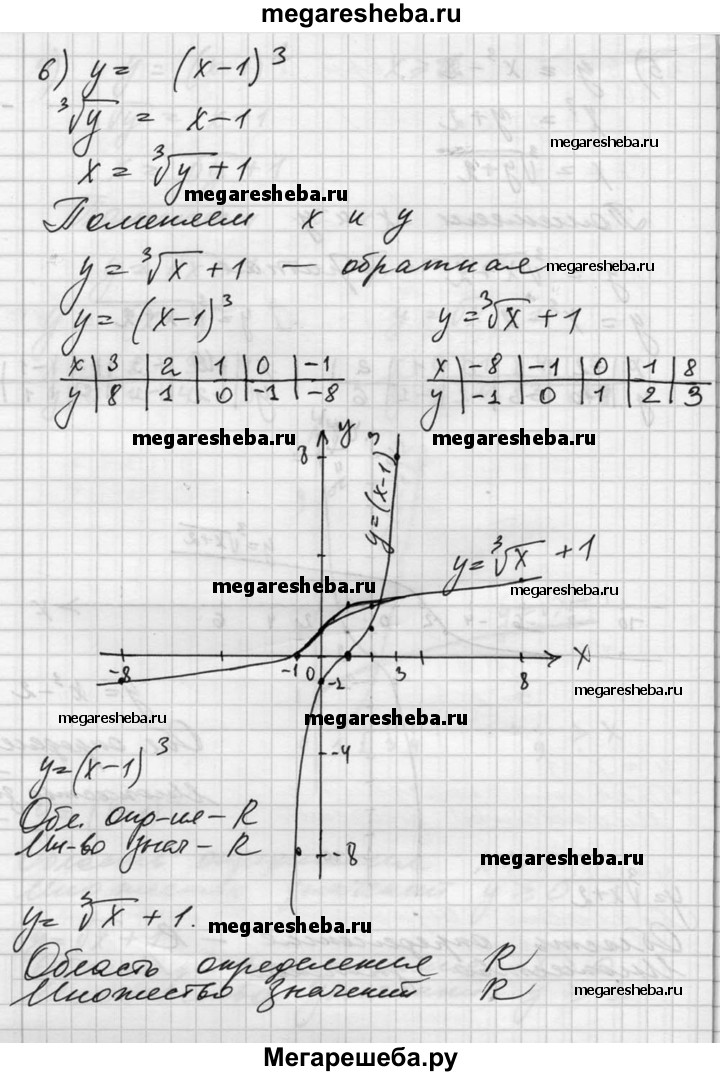 megaresheba.ru
6) y = (x-1)³
³√y = x-1
megaresheba.ru
x = ³√y + 1
megaresheba.ru
Поменяем x и y
y = ³√x + 1 — обратная
megaresheba.ru
y = (x-1)³ y = ³√x + 1
x | 3 | 2 | 1 | 0 | -1
y | 8 | 1 | 0 | -1 | -8
x | -8 | -1 | 0 | 1 | 8
y | -1 | 0 | 1 | 2 | 3
megaresheba.ru megaresheba.ru
y
8
y=(x-1)³
y=³√x + 1
megaresheba.ru megaresheba.ru
-8 -1 0 3 8 x
-2
megaresheba.ru megaresheba.ru megaresheba.ru
-4
y=(x-1)³
Обл. опр-ия - R
Мн-во знач - R
-8
megaresheba.ru
y = ³√x + 1.
megaresheba.ru
Область определения R
Множество значений R
megaresheba.ru
Мегарешеба.ру